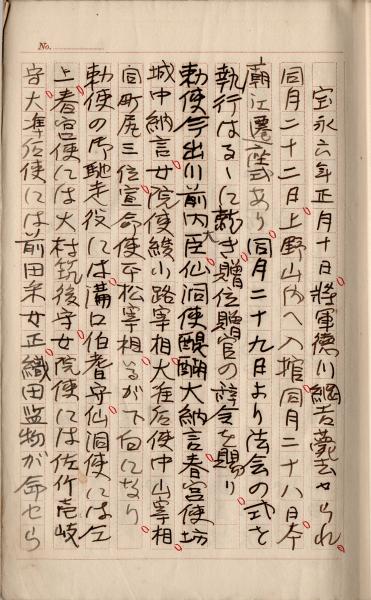 No.
宝永六年正月十日将軍徳川綱吉薨去せられ
同月二十二日上野山内へ入棺同月二十八日本
廟江遷座式あり同月二十九日より法会の式を
執行はるゝに就き贈位贈官の辞令を賜り
勅使今出川前内大臣仙洞使醍醐大納言春宮使坊
城中納言女院使綾小路宰相大准后使中山宰相
宮町尻三位宣命使平松宰相等が下向になり
勅使の御馳走役には溝口伯耆守仙洞使には
上春宮使には大村筑後守女院使には佐竹壱岐
守大準后使には前田采女正織田監物が命せら